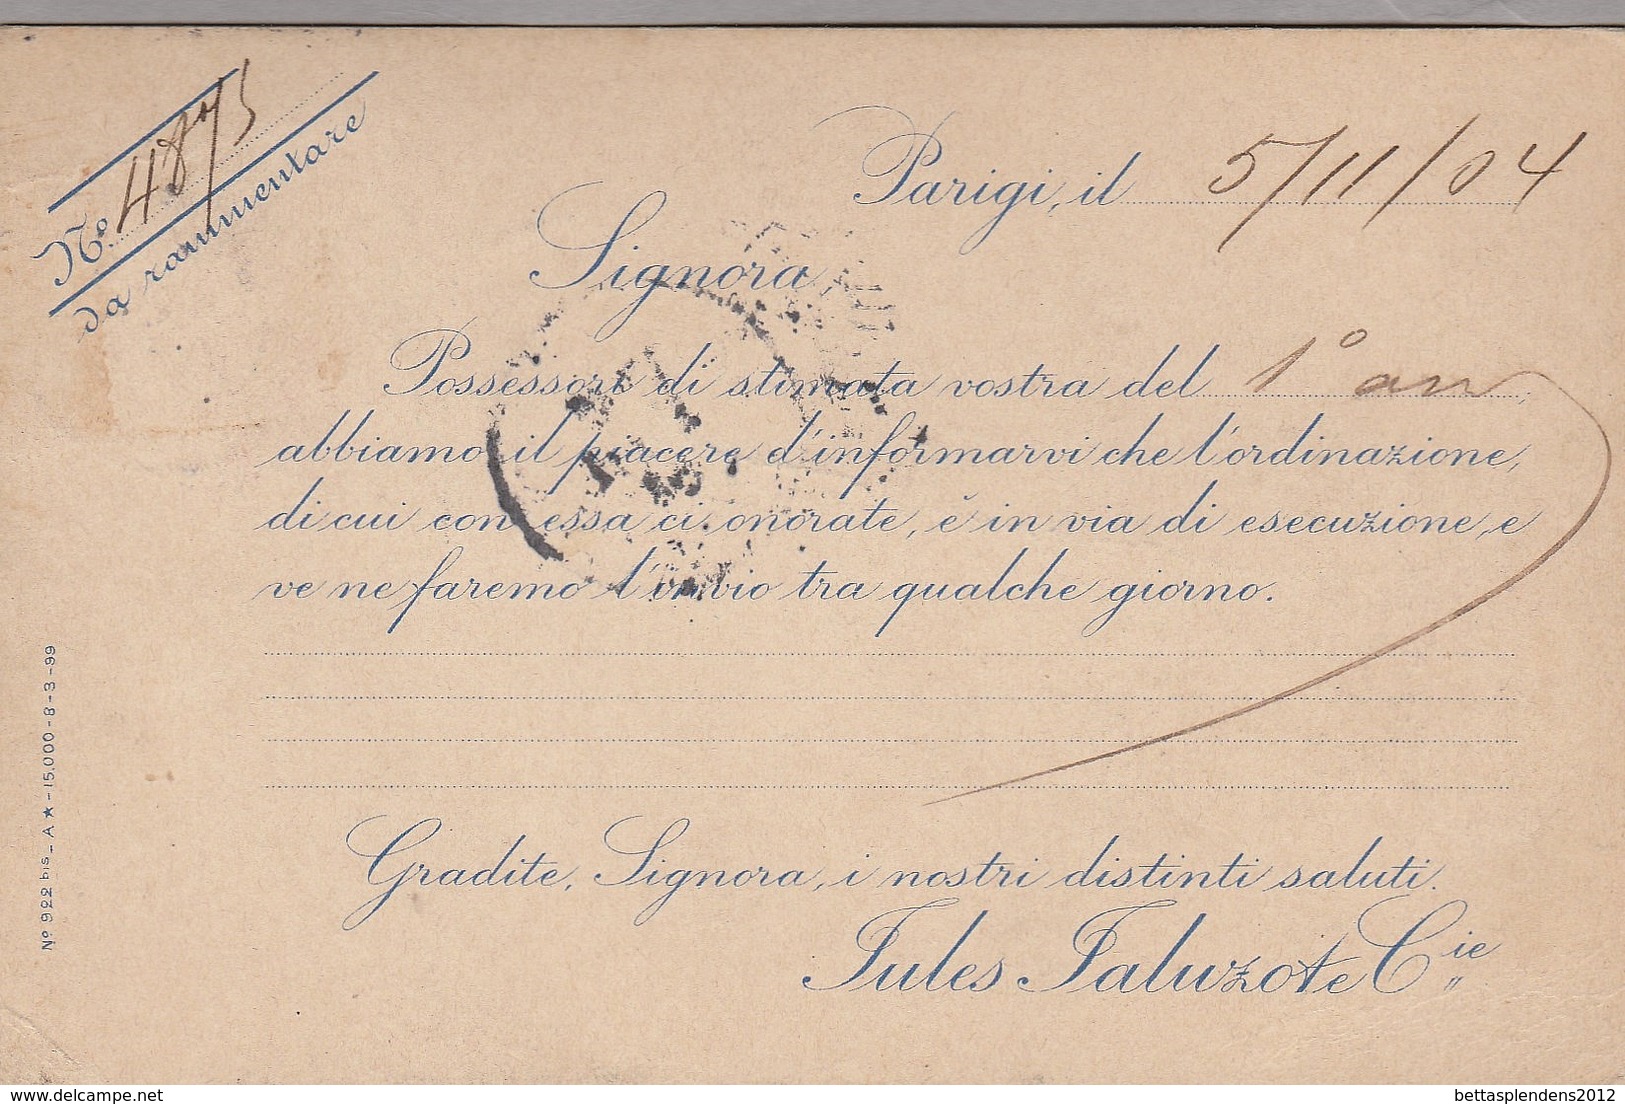 Nº 4873
da rammentare
Parigi, il 5/11/04
Signora,
Possessori di stimata vostra del 1º
abbiamo il piacere d'informarvi che l'ordinazione,
di cui con essa ci onorate, è in via di esecuzione, e
ve ne faremo l'invio tra qualche giorno.
Gradite, Signora, i nostri distinti saluti.
Jules Jaluzot e Cie
Nº 922 bis _ A ★ - 15.000 - 8 - 3 - 99
delcampe.net
bettasplendens2012